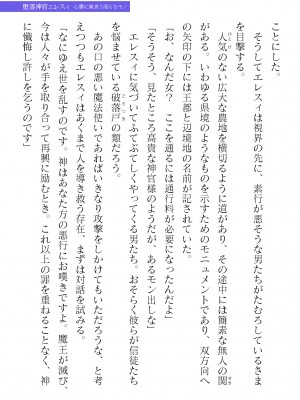 堕落神官エレスィ 心嚢に巣食う淫らなモノ
ことにした。
そうしてエレスィは視界の先に、素行が悪そうな男たちがたむろしているさま
を目撃する。
人気のない広大な農地を横切るように道があり、その途中には簡素な無人の関
がある。いわゆる県境のようなものを示すためのモニュメントであり、双方向へ
の矢印の下には王都と辺境地の名前が記されていた。
「お、なんだ女？　ここを通るには通行料が必要になったんだよ」
「そうそう、見たところ高貴な神官様のようだが、あるモン出しな」
エレスィに気づいてふてぶてしくやってくる男たち。おそらく彼らが信徒たち
を悩ませている破落戸の類だろう。
あの口の悪い魔法使いであればいきなり攻撃をしてもいただろうな、と考
えつつもエレスィはあくまで人を導き救う存在、まずは対話を試みる。
「なにゆえ世を乱すのです。神はあなた方の悪行にお嘆きですよ。魔王が滅び、
今は人々が手を取り合って再興に励むとき。これ以上の罪を重ねることなく、神
に懺悔し許しを乞うのです」